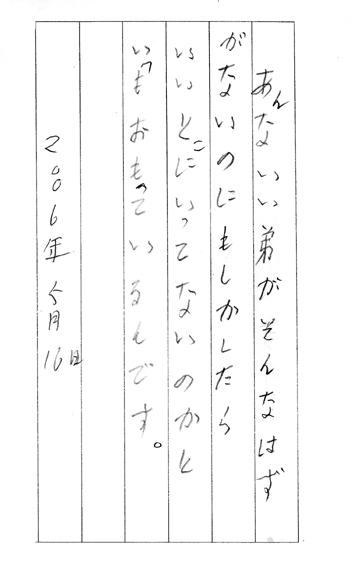 あんないい弟がそんなはず
がないのにもしかしたら
いいとこにいってないのかと
いつもおもっているんです。
2006年5月16日